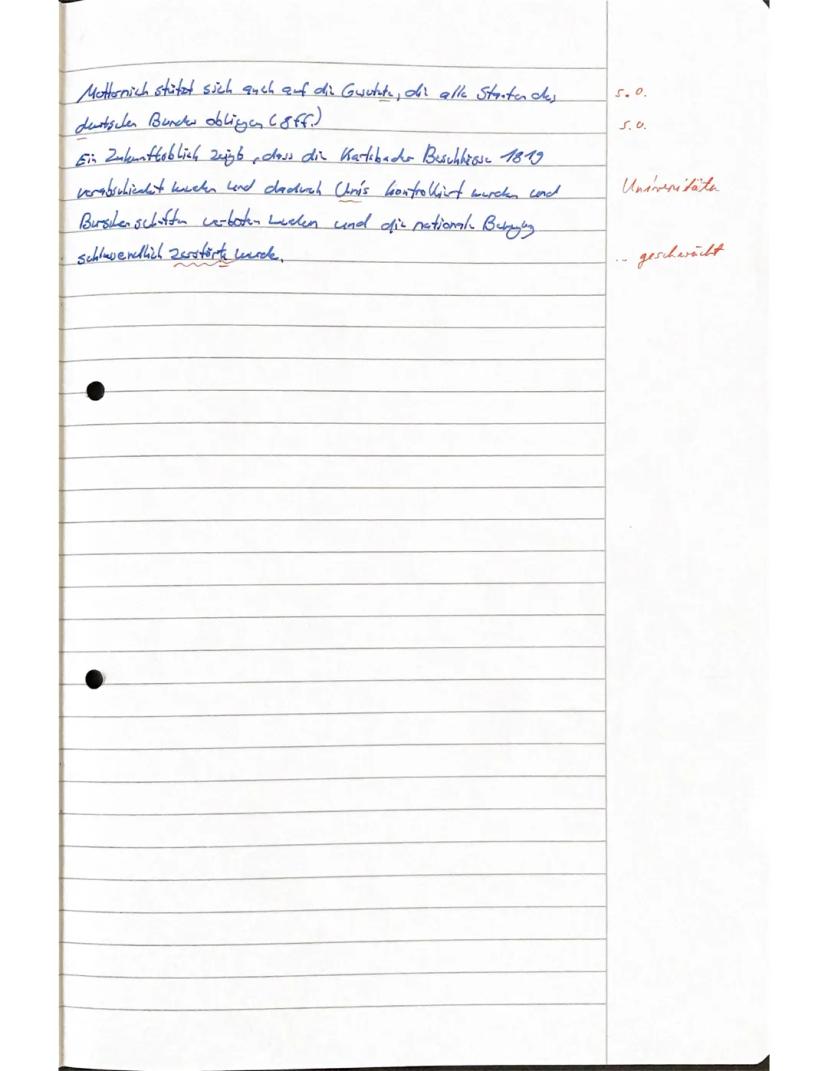 Metternich stützt sich auch auf die Gesetzte, die alle Staaten des
s. o.
deutschen Bundes obliegen (8ff.)
s. o.
Ein Zukunftsblick zeigt, dass die Karlsbader Beschlüsse 1819
verabschiedet wurden und dadurch Unis kontrolliert wurden und
Universitäten
Burschenschaften verboten wurden und die nationale Bewegung
schlussendlich zerstört wurde.
.. geschwächt